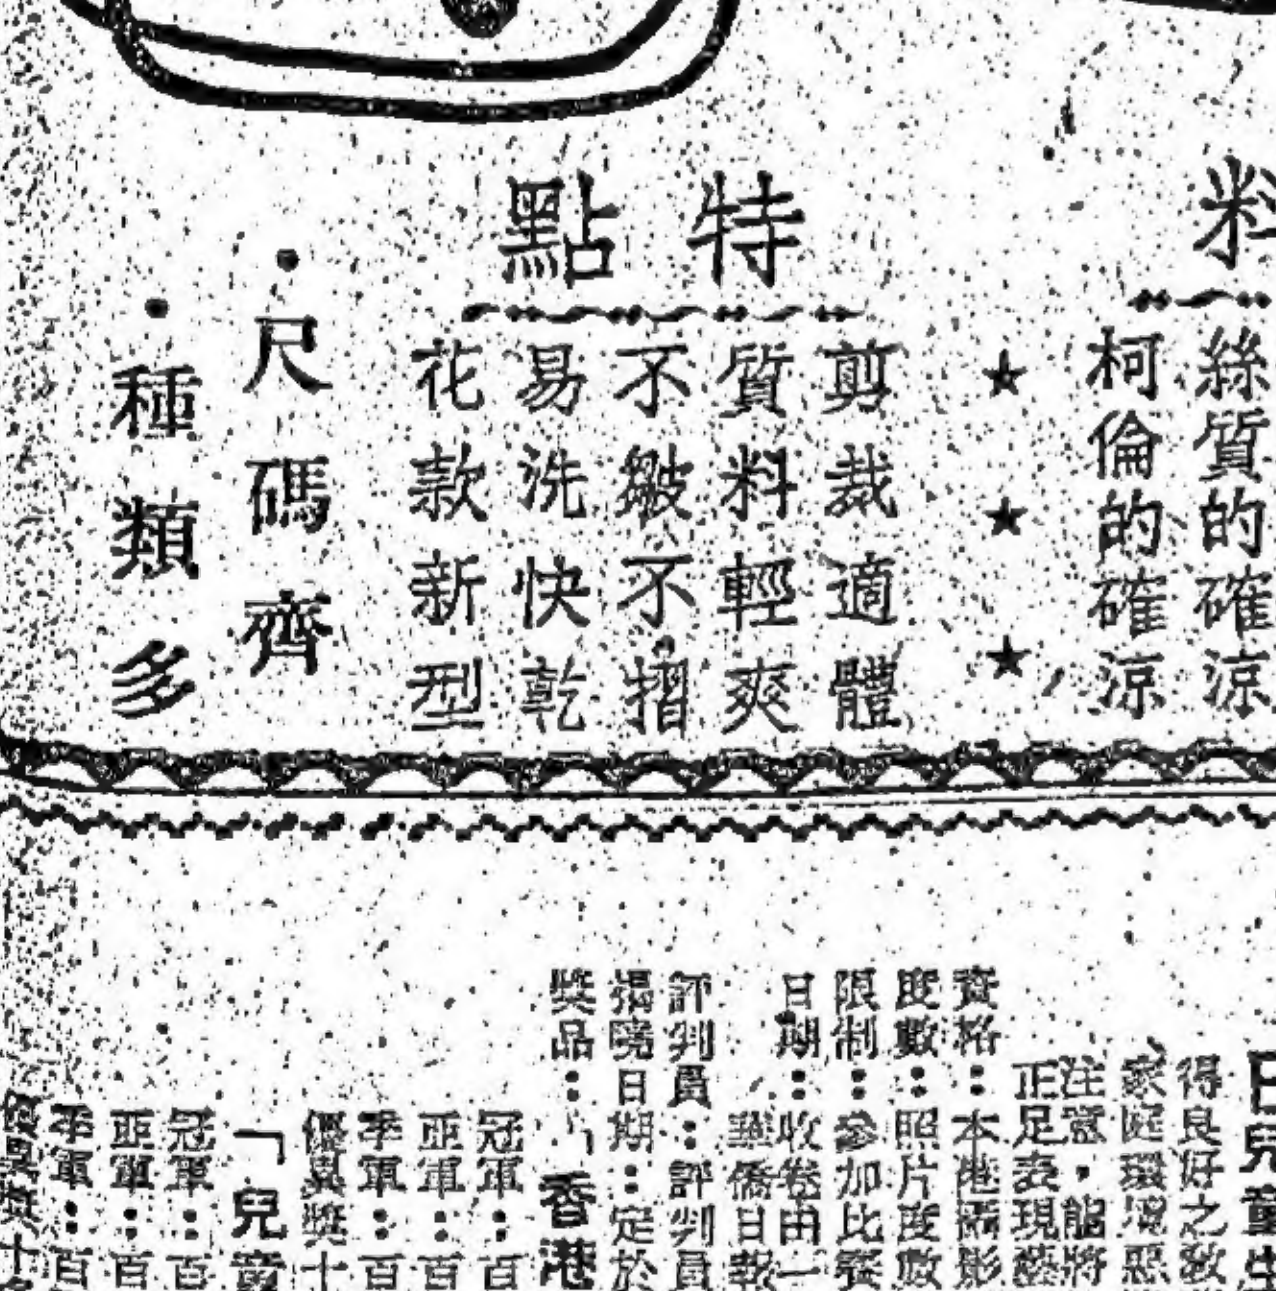 料
絲質的確涼
柯倫的確涼
★★★
特點
剪裁適體
質料輕爽
不皺不摺
易洗快乾
花款新型
•尺碼齊
•種類多
日兒童生
得良好之教
家庭環境惡
注意,能將
正足表現藝
資格:本港攝影
度數:照片度數
限制:參加比賽
日期:收卷由一
華僑日報
評判員:評判員
揭曉日期:定於
獎品:「香港
冠軍:百
亞軍:百
季軍:百
優異獎十
「兒童
冠軍:百
亞軍:百
季軍:百
優異獎十